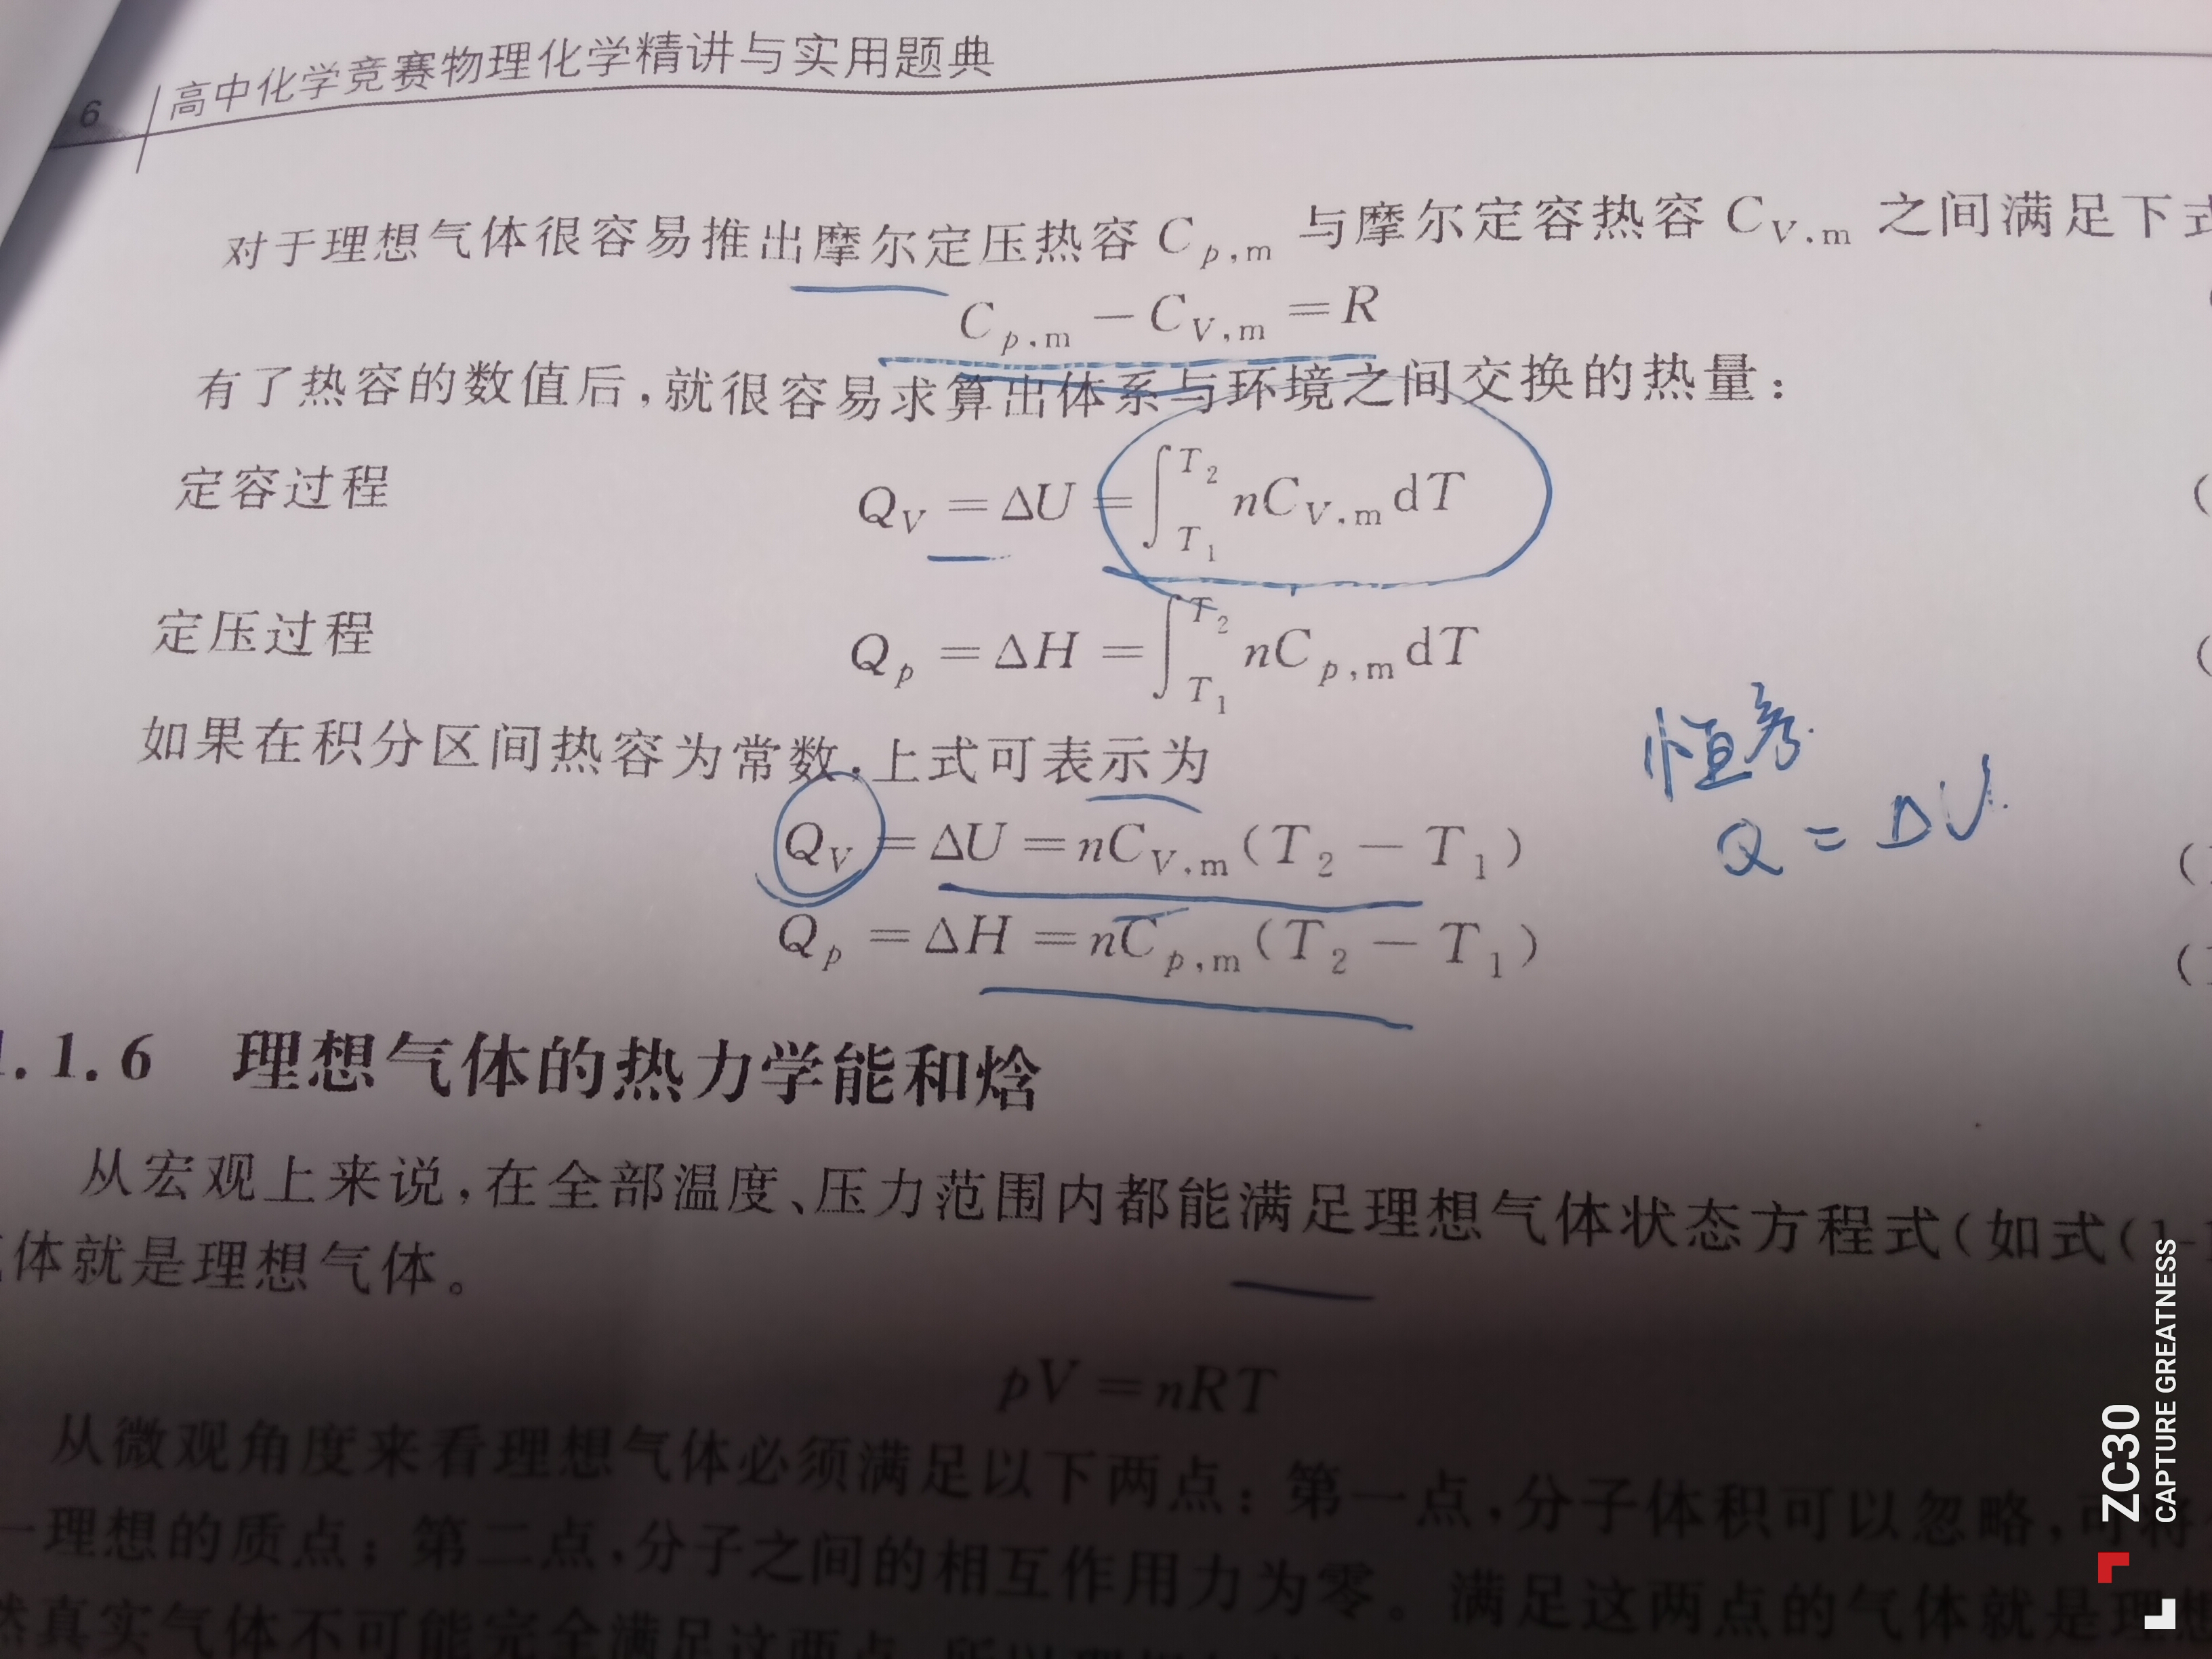 6
高中化学竞赛物理化学精讲与实用题典
对于理想气体很容易推出摩尔定压热容 C_{p,m} 与摩尔定容热容 C_{V,m} 之间满足下式
C_{p,m} − C_{V,m} = R
有了热容的数值后,就很容易求算出体系与环境之间交换的热量:
定容过程 Q_V = ΔU = ∫_{T_1}^{T_2} nC_{V,m} dT (
定压过程 Q_p = ΔH = ∫_{T_1}^{T_2} nC_{p,m} dT (
如果在积分区间热容为常数,上式可表示为
恒容
Q_V = ΔU = nC_{V,m}(T_2 − T_1)
Q = ΔU
Q_p = ΔH = nC_{p,m}(T_2 − T_1)
1.1.6 理想气体的热力学能和焓
从宏观上来说,在全部温度、压力范围内都能满足理想气体状态方程式(如式(1-
体就是理想气体。
pV = nRT
从微观角度来看理想气体必须满足以下两点:第一点,分子体积可以忽略,可将
一理想的质点;第二点,分子之间的相互作用力为零。满足这两点的气体就是理想
然真实气体不可能完全满足这两点
ZC30
CAPTURE GREATNESS